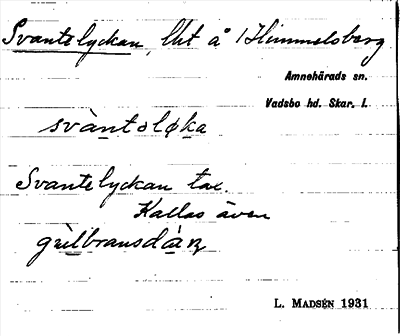 Svantelyckan, lht å /Himmelsberg
Amnehärads sn.
Vadsbo hd. Skar. l.
svàntoløka
Svantelyckan tax.
Kallas även
gœ̀lbransdàɳ
L. MADSÉN 1931